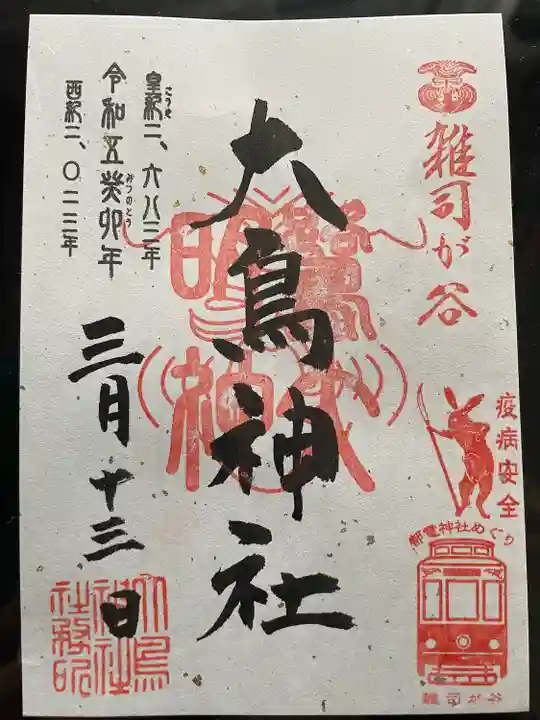 雑司が谷
疫病安全
都電神社めぐり
雑司が谷
大鳥神社
皇紀二、六八三年
こうき
令和五癸卯年
みづのとう
西紀二、〇二三年
三月十三日
大鳥
神社
社務所